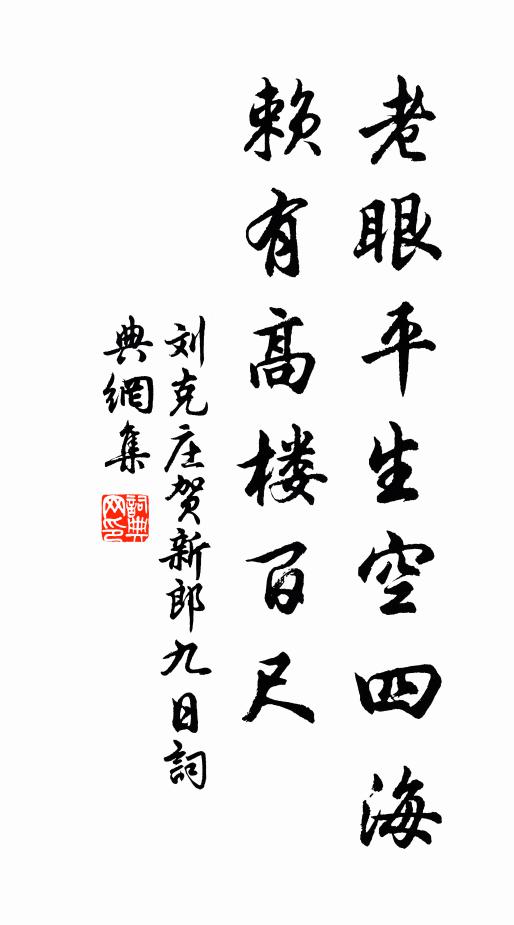 老眼平生空四海
赖有高楼百尺
刘克庄贺新郎九日詞
典網集
詞典
网印